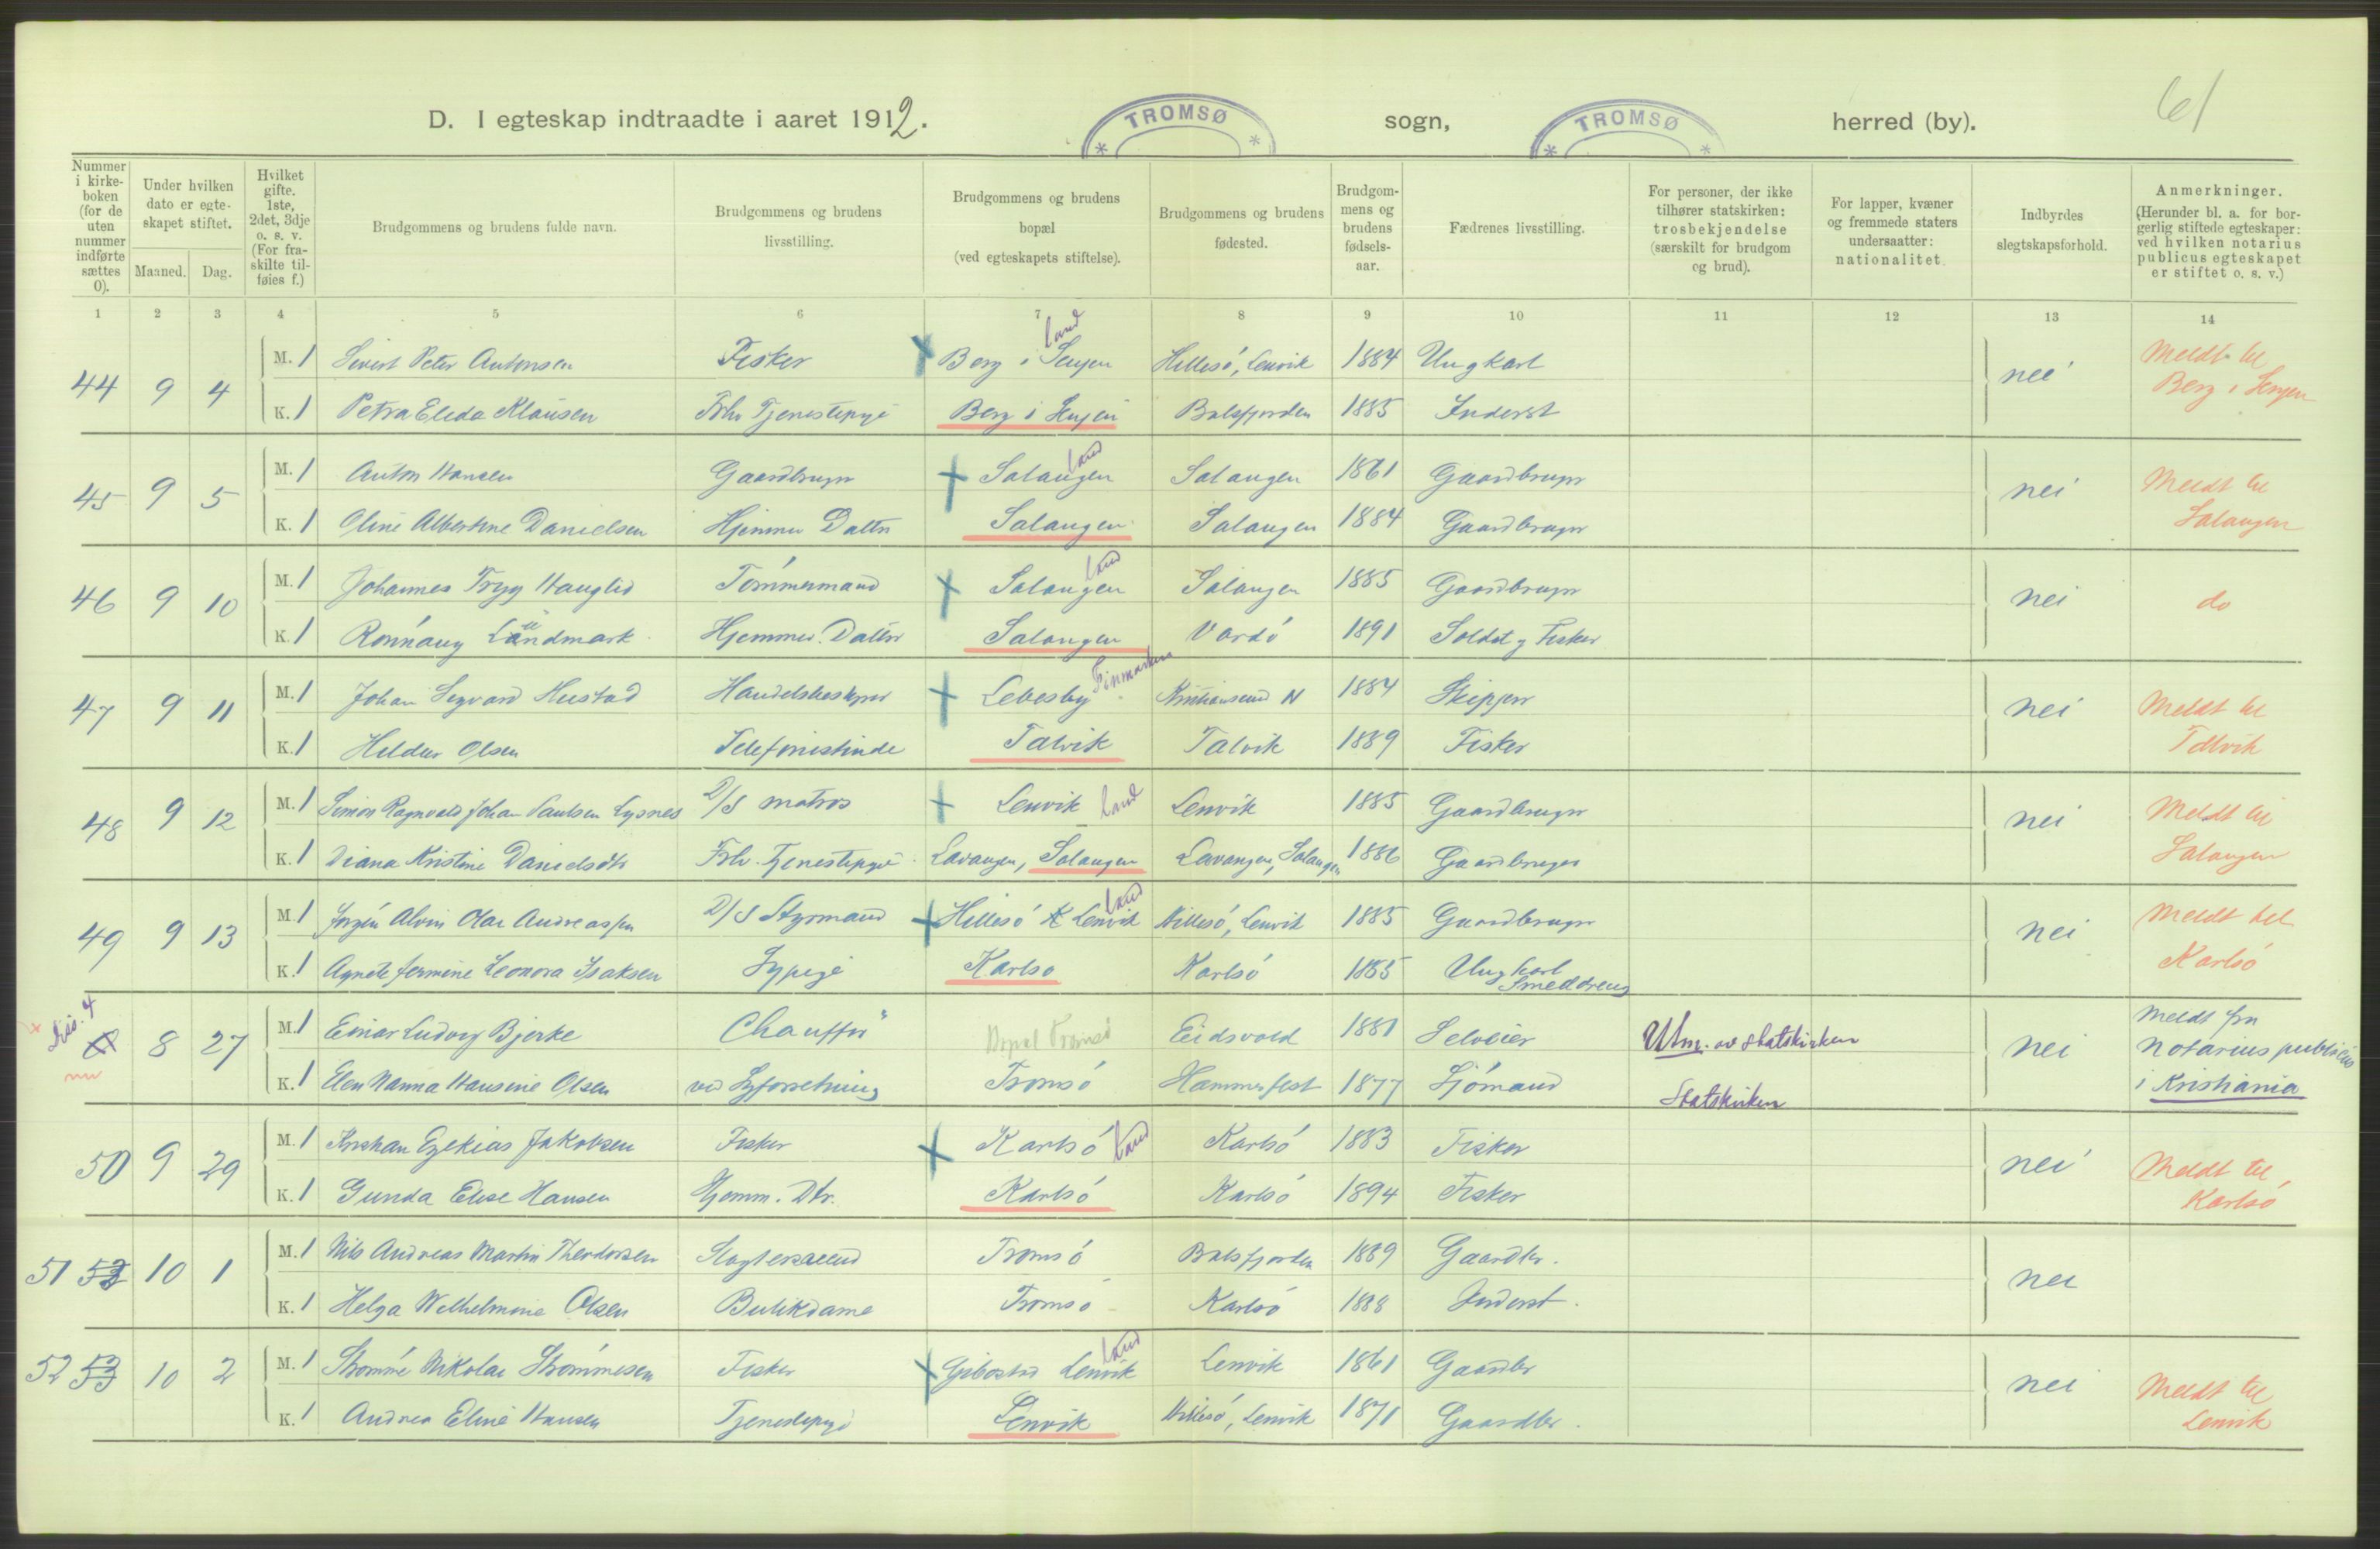 61
D. I egteskap indtraadte i aaret 1912. TROMSØ sogn, TROMSØ herred (by).
Nummer i kirke- boken (for de uten nummer indførte sættes 0).
Under hvilken dato er egte- skapet stiftet.
Maaned. Dag.
Hvilket gifte. 1ste, 2det, 3dje o. s. v. (For fra- skilte til- føies f.)
Brudgommens og brudens fulde navn.
Brudgommens og brudens livsstilling.
Brudgommens og brudens bopæl (ved egteskapets stiftelse).
Brudgommens og brudens fødested.
Brudgom- mens og brudens fødsels- aar.
Fædrenes livsstilling.
For personer, der ikke tilhører statskirken: trosbekjendelse (særskilt for brudgom og brud).
For lapper, kvæner og fremmede staters undersaatter: nationalitet.
Indbyrdes slegtskapsforhold.
Anmerkninger. (Herunder bl. a. for bor- gerlig stiftede egteskaper: ved hvilken notarius publicus egteskapet er stiftet o. s. v.)
1 2 3 4 5 6 7 8 9 10 11 12 13 14
44 9 4 M. 1 Sivert Peter Antonsen Fisker Berg i Senjen land Hillesö, Lenvik 1884 Ungkarl nei Meldt til Berg i Senjen
K. 1 Petra Elida Klausen Fhv Tjenestepige Berg i Senjen Balsfjorden 1885 Inderst
45 9 5 M. 1 Anton Hansen Gaardbruger Salangen land Salangen 1861 Gaardbruger nei Meldt til Salangen
K. 1 Oline Albertine Danielsen Hjemmev Datter Salangen Salangen 1884 Gaardbruger
46 9 10 M. 1 Johannes Tryg Hauglid Tömmermand Salangen land Salangen 1885 Gaardbruger nei do
K. 1 Rönnaug Landmark Hjemmev. Datter Salangen Vardö 1891 Soldat og Fisker
47 9 11 M. 1 Johan Sigvard Hustad Handelsbestyrer Lebesby Finmarken Kristiansund N 1884 Skipper nei Meldt til Talvik
K. 1 Hildur Olsen Telefonistinde Talvik Talvik 1889 Fisker
48 9 12 M. 1 Simon Ragnvald Johan Paulsen Lysnes D/S matros Lenvik land Lenvik 1885 Gaardbruger nei Meldt til Salangen
K. 1 Diana Kristine Danielsdtr Fhv. Tjenestepige Lavangen, Salangen Lavangen, Salangen 1886 Gaardbruger
49 9 13 M. 1 Jørgen Alvin Olai Andreassen D/S Styrmand Hillesö Lenvik land Hillesö, Lenvik 1885 Gaardbruger nei Meldt til Karlsö
K. 1 Agnete Jermine Leonora Isaksen Sypige Karlsö Karlsö 1885 Ungkarl Smeddreng
Dis. 4 8 27 M. 1 Einar Ludvig Bjerke Chauffør Tromsö Eidsvold 1881 Selveier Utm. av statskirken nei Meldt fra notarius publicus i Kristiania
K. 1 Elen Nanna Hansine Olsen ved Syforretning Tromsö Hammerfest 1877 Sjömand Statskirken
50 9 29 M. 1 Kristian Ezekias Jakobsen Fisker Karlsö land Karlsö 1883 Fisker nei Meldt til Karlsö
K. 1 Gunda Elise Hansen Hjemm. Dtr. Karlsö Karlsö 1894 Fisker
51 52 10 1 M. 1 Nils Andreas Martin Theodorsen Slagtersvend Tromsö Balsfjorden 1889 Gaardbr. nei
K. 1 Helga Wilhelmine Olsen Butikdame Tromsö Karlsö 1888 Inderst.
52 53 10 2 M. 1 Strömme Nikolai Strömmesen Fisker Gibostad Lenvik land Lenvik 1861 Gaardbr nei Meldt til Lenvik
K. 1 Andrea Eline Hansen Tjenestepige Lenvik Hillesö, Lenvik 1871 Gaardbr.